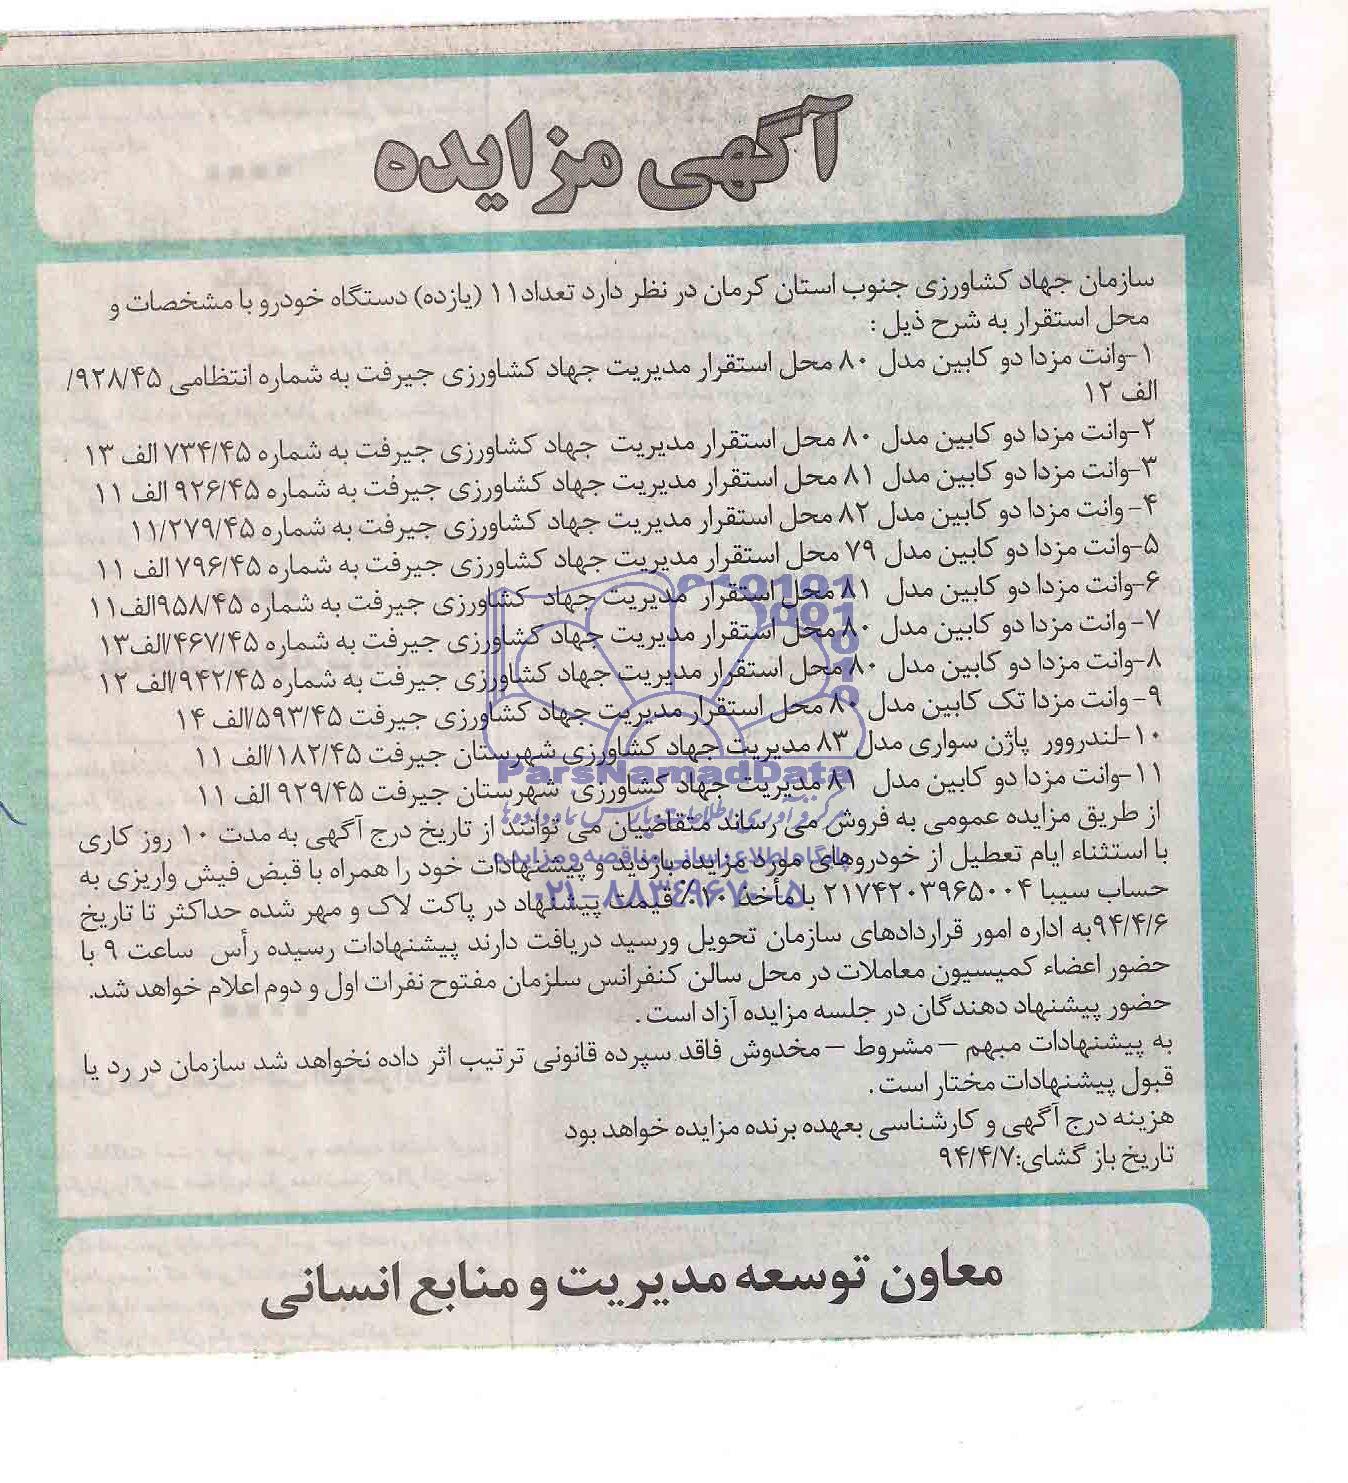 آگهی مزایده
سازمان جهاد کشاورزی جنوب استان کرمان در نظر دارد تعداد۱۱ (یازده) دستگاه خودرو با مشخصات و
محل استقرار به شرح ذیل :
۱-وانت مزدا دو کابین مدل ۸۰ محل استقرار مدیریت جهاد کشاورزی جیرفت به شماره انتظامی ۹۲۸/۴۵/
الف ۱۲
۲-وانت مزدا دو کابین مدل ۸۰ محل استقرار مدیریت جهاد کشاورزی جیرفت به شماره ۷۳۴/۴۵ الف ۱۳
۳-وانت مزدا دو کابین مدل ۸۱ محل استقرار مدیریت جهاد کشاورزی جیرفت به شماره ۹۲۶/۴۵ الف ۱۱
۴- وانت مزدا دو کابین مدل ۸۲ محل استقرار مدیریت جهاد کشاورزی جیرفت به شماره ۱۱/۲۷۹/۴۵
۵-وانت مزدا دو کابین مدل ۷۹ محل استقرار مدیریت جهاد کشاورزی جیرفت به شماره ۷۹۶/۴۵ الف ۱۱
۶-وانت مزدا دو کابین مدل ۸۱ محل استقرار مدیریت جهاد کشاورزی جیرفت به شماره ۹۵۸/۴۵الف۱۱
۷- وانت مزدا دو کابین مدل ۸۰ محل استقرار مدیریت جهاد کشاورزی جیرفت به شماره ۴۶۷/۴۵/الف۱۳
۸-وانت مزدا دو کابین مدل ۸۰ محل استقرار مدیریت جهاد کشاورزی جیرفت به شماره ۹۴۲/۴۵/الف ۱۲
۹- وانت مزدا تک کابین مدل ۸۰ محل استقرار مدیریت جهاد کشاورزی جیرفت ۵۹۳/۴۵/الف ۱۴
۱۰-لندروور پاژن سواری مدل ۸۳ مدیریت جهاد کشاورزی شهرستان جیرفت ۱۸۲/۴۵/الف ۱۱
۱۱-وانت مزدا دو کابین مدل ۸۱ مدیریت جهاد کشاورزی شهرستان جیرفت ۹۲۹/۴۵ الف ۱۱
از طریق مزایده عمومی به فروش می رساند متقاضیان می توانند از تاریخ درج آگهی به مدت ۱۰ روز کاری
با استثناء ایام تعطیل از خودروهای مورد مزایده بازدید و پیشنهادات خود را همراه با قبض فیش واریزی به
حساب سیبا ۲۱۷۴۲۰۳۹۶۵۰۰۴ با مأخذ ۱۰٪ قیمت پیشنهاد در پاکت لاک و مهر شده حداکثر تا تاریخ
۹۴/۴/۶به اداره امور قراردادهای سازمان تحویل ورسید دریافت دارند پیشنهادات رسیده رأس ساعت ۹ با
حضور اعضاء کمیسیون معاملات در محل سالن کنفرانس سلزمان مفتوح نفرات اول و دوم اعلام خواهد شد.
حضور پیشنهاد دهندگان در جلسه مزایده آزاد است .
به پیشنهادات مبهم – مشروط – مخدوش فاقد سپرده قانونی ترتیب اثر داده نخواهد شد سازمان در رد یا
قبول پیشنهادات مختار است .
هزینه درج آگهی و کارشناسی بعهده برنده مزایده خواهد بود
تاریخ باز گشای:۹۴/۴/۷
معاون توسعه مدیریت و منابع انسانی
ParsNamadData
مرکز فرآوری اطلاعات پارس نماد داده ها
پایگاه اطلاع رسانی مناقصه و مزایده
۰۲۱-۸۸۳۴۹۶۷۰-۵